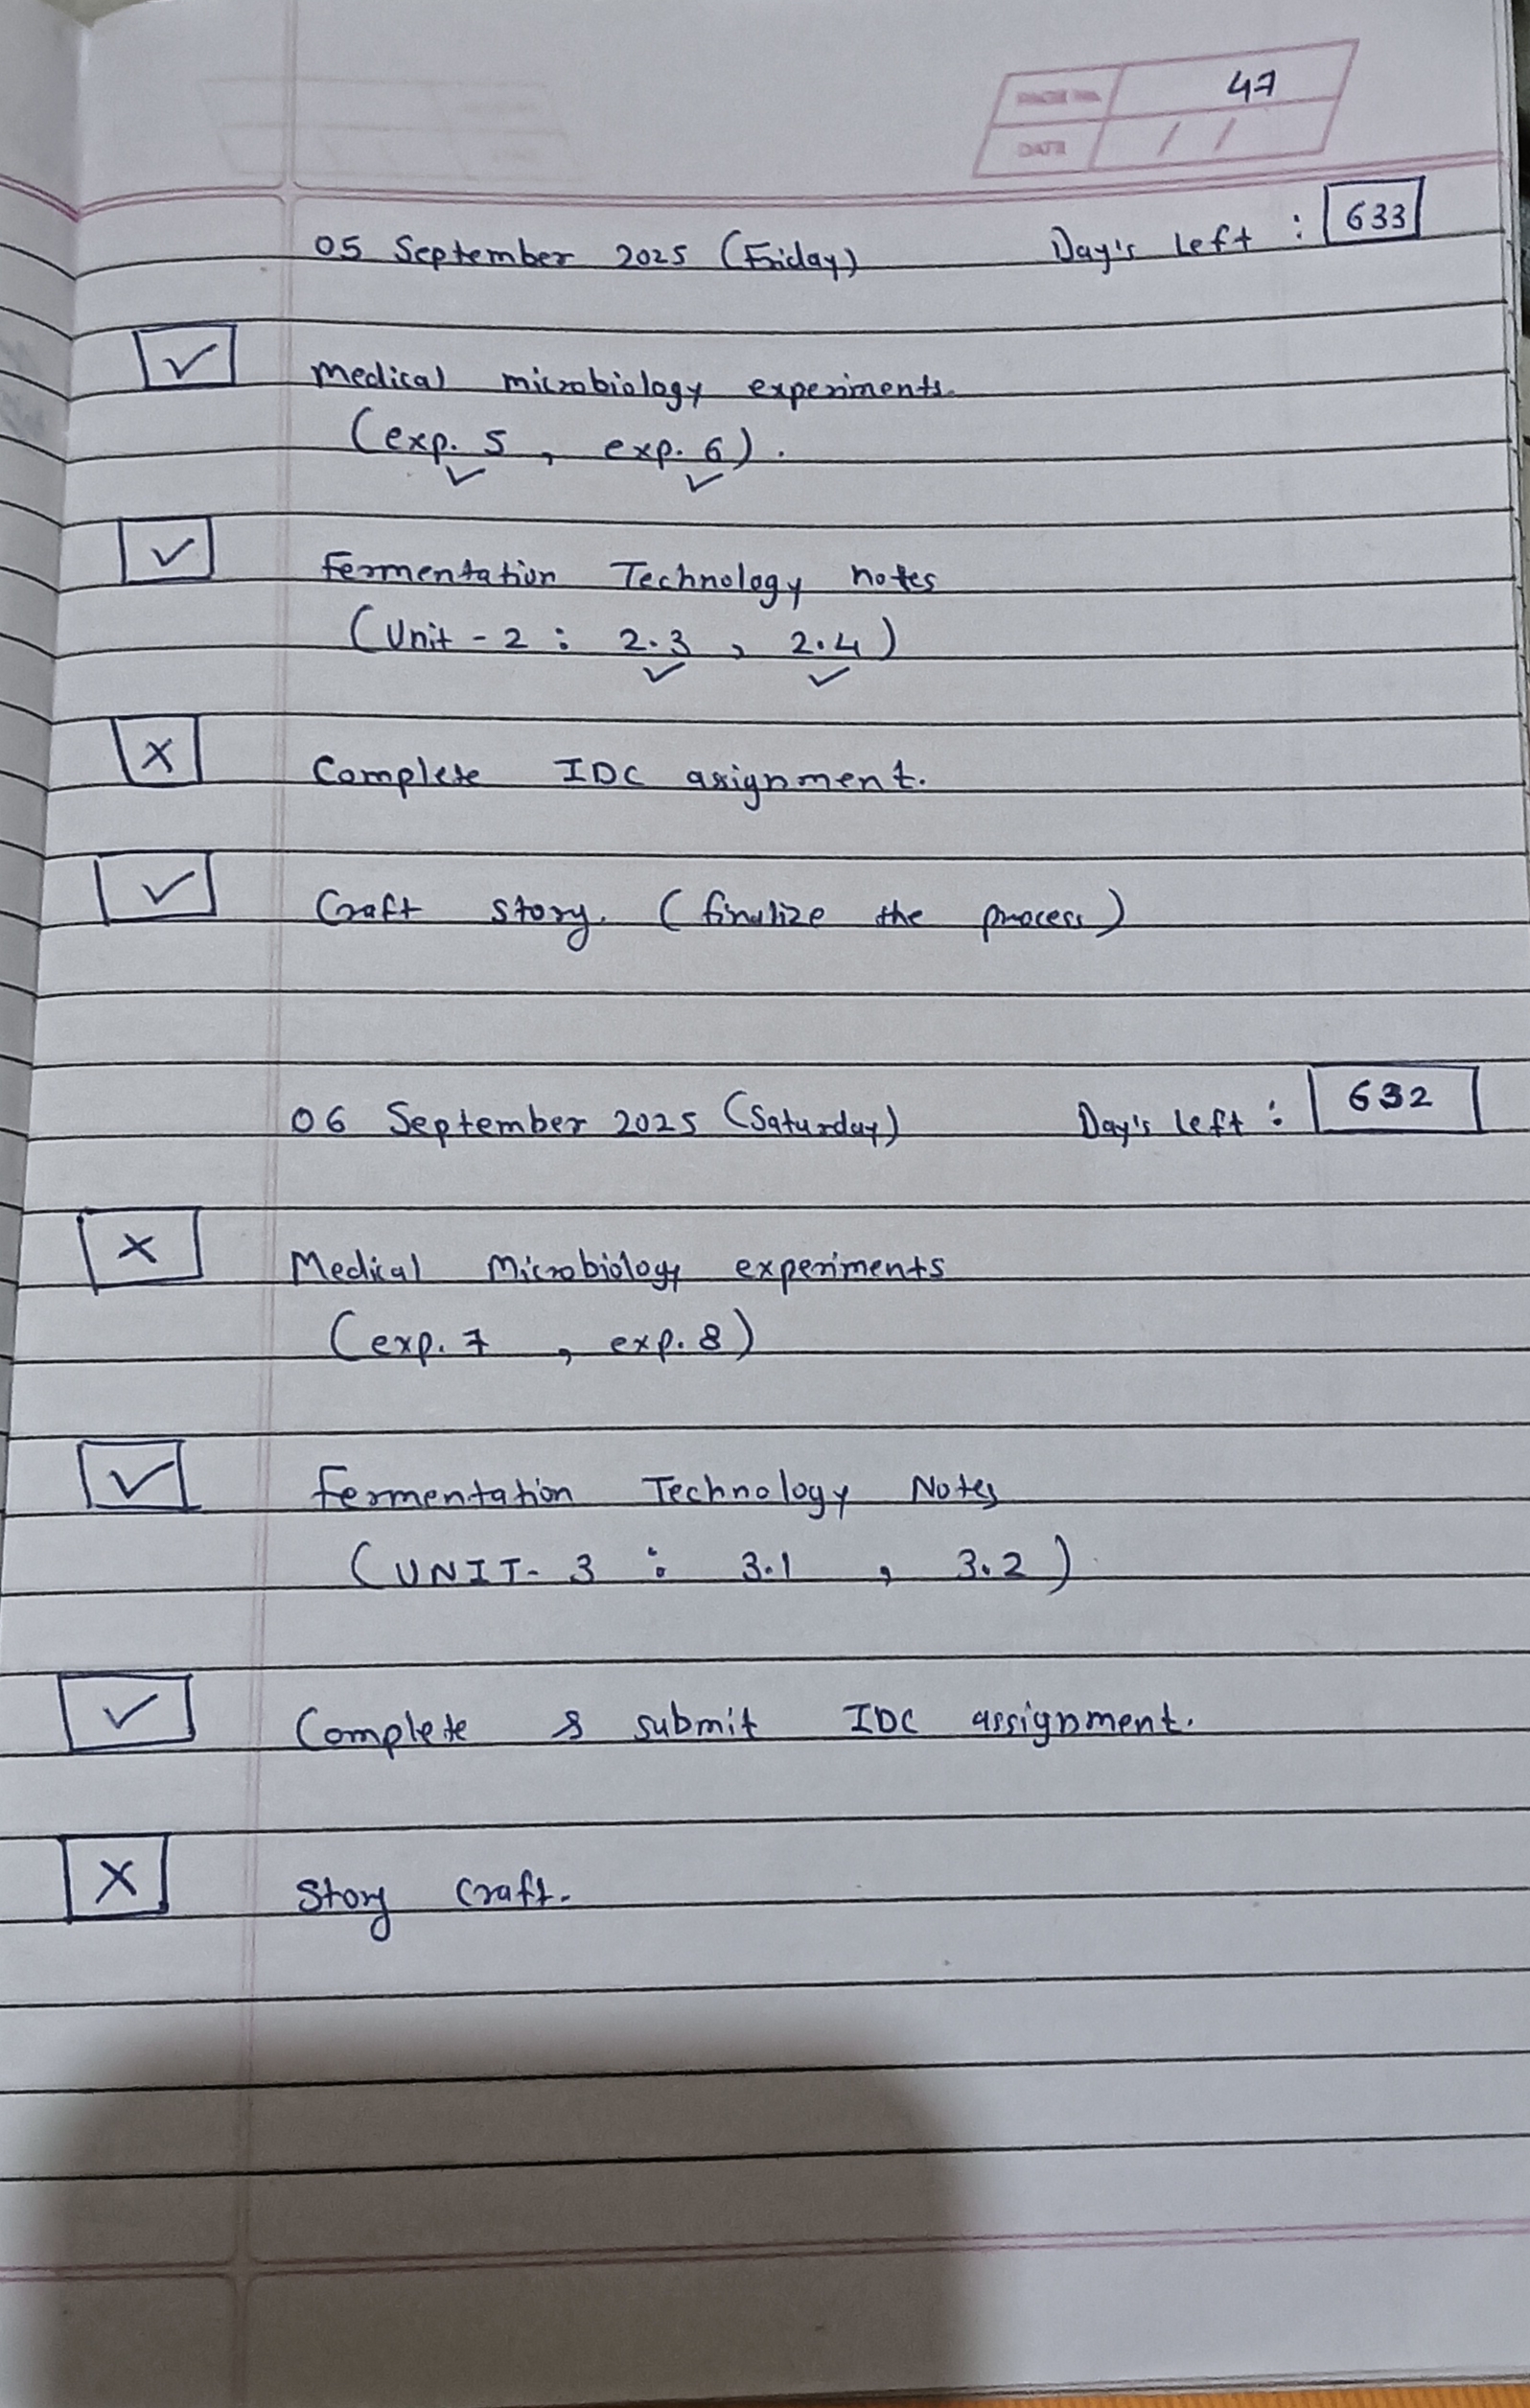 PAGE No. 47
DATE / /
05 September 2025 (Friday) Day's Left : 633
✓ Medical microbiology experiments.
(exp. 5, exp. 6).
✓ ✓
✓ Fermentation Technology notes
(Unit - 2 : 2.3, 2.4)
✓ ✓
X Complete IDC assignment.
✓ Craft story. (finalize the process)
06 September 2025 (Saturday) Day's Left : 632
X Medical Microbiology experiments
(exp. 7, exp. 8)
✓ Fermentation Technology Notes
(UNIT- 3 : 3.1, 3.2)
✓ Complete & submit IDC assignment.
X Story Craft.